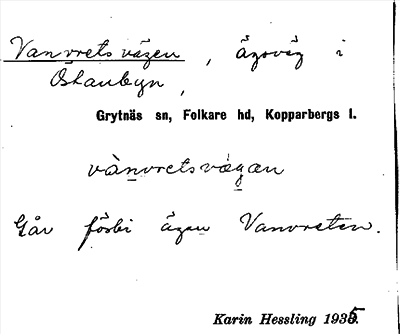 Vanvretsvägen, ägoväg i
Östanbyn,
Grytnäs sn, Folkare hd, Kopparbergs l.
vànvretsvägan
Går förbi ägan Vanvreten.
Karin Hessling 1935.